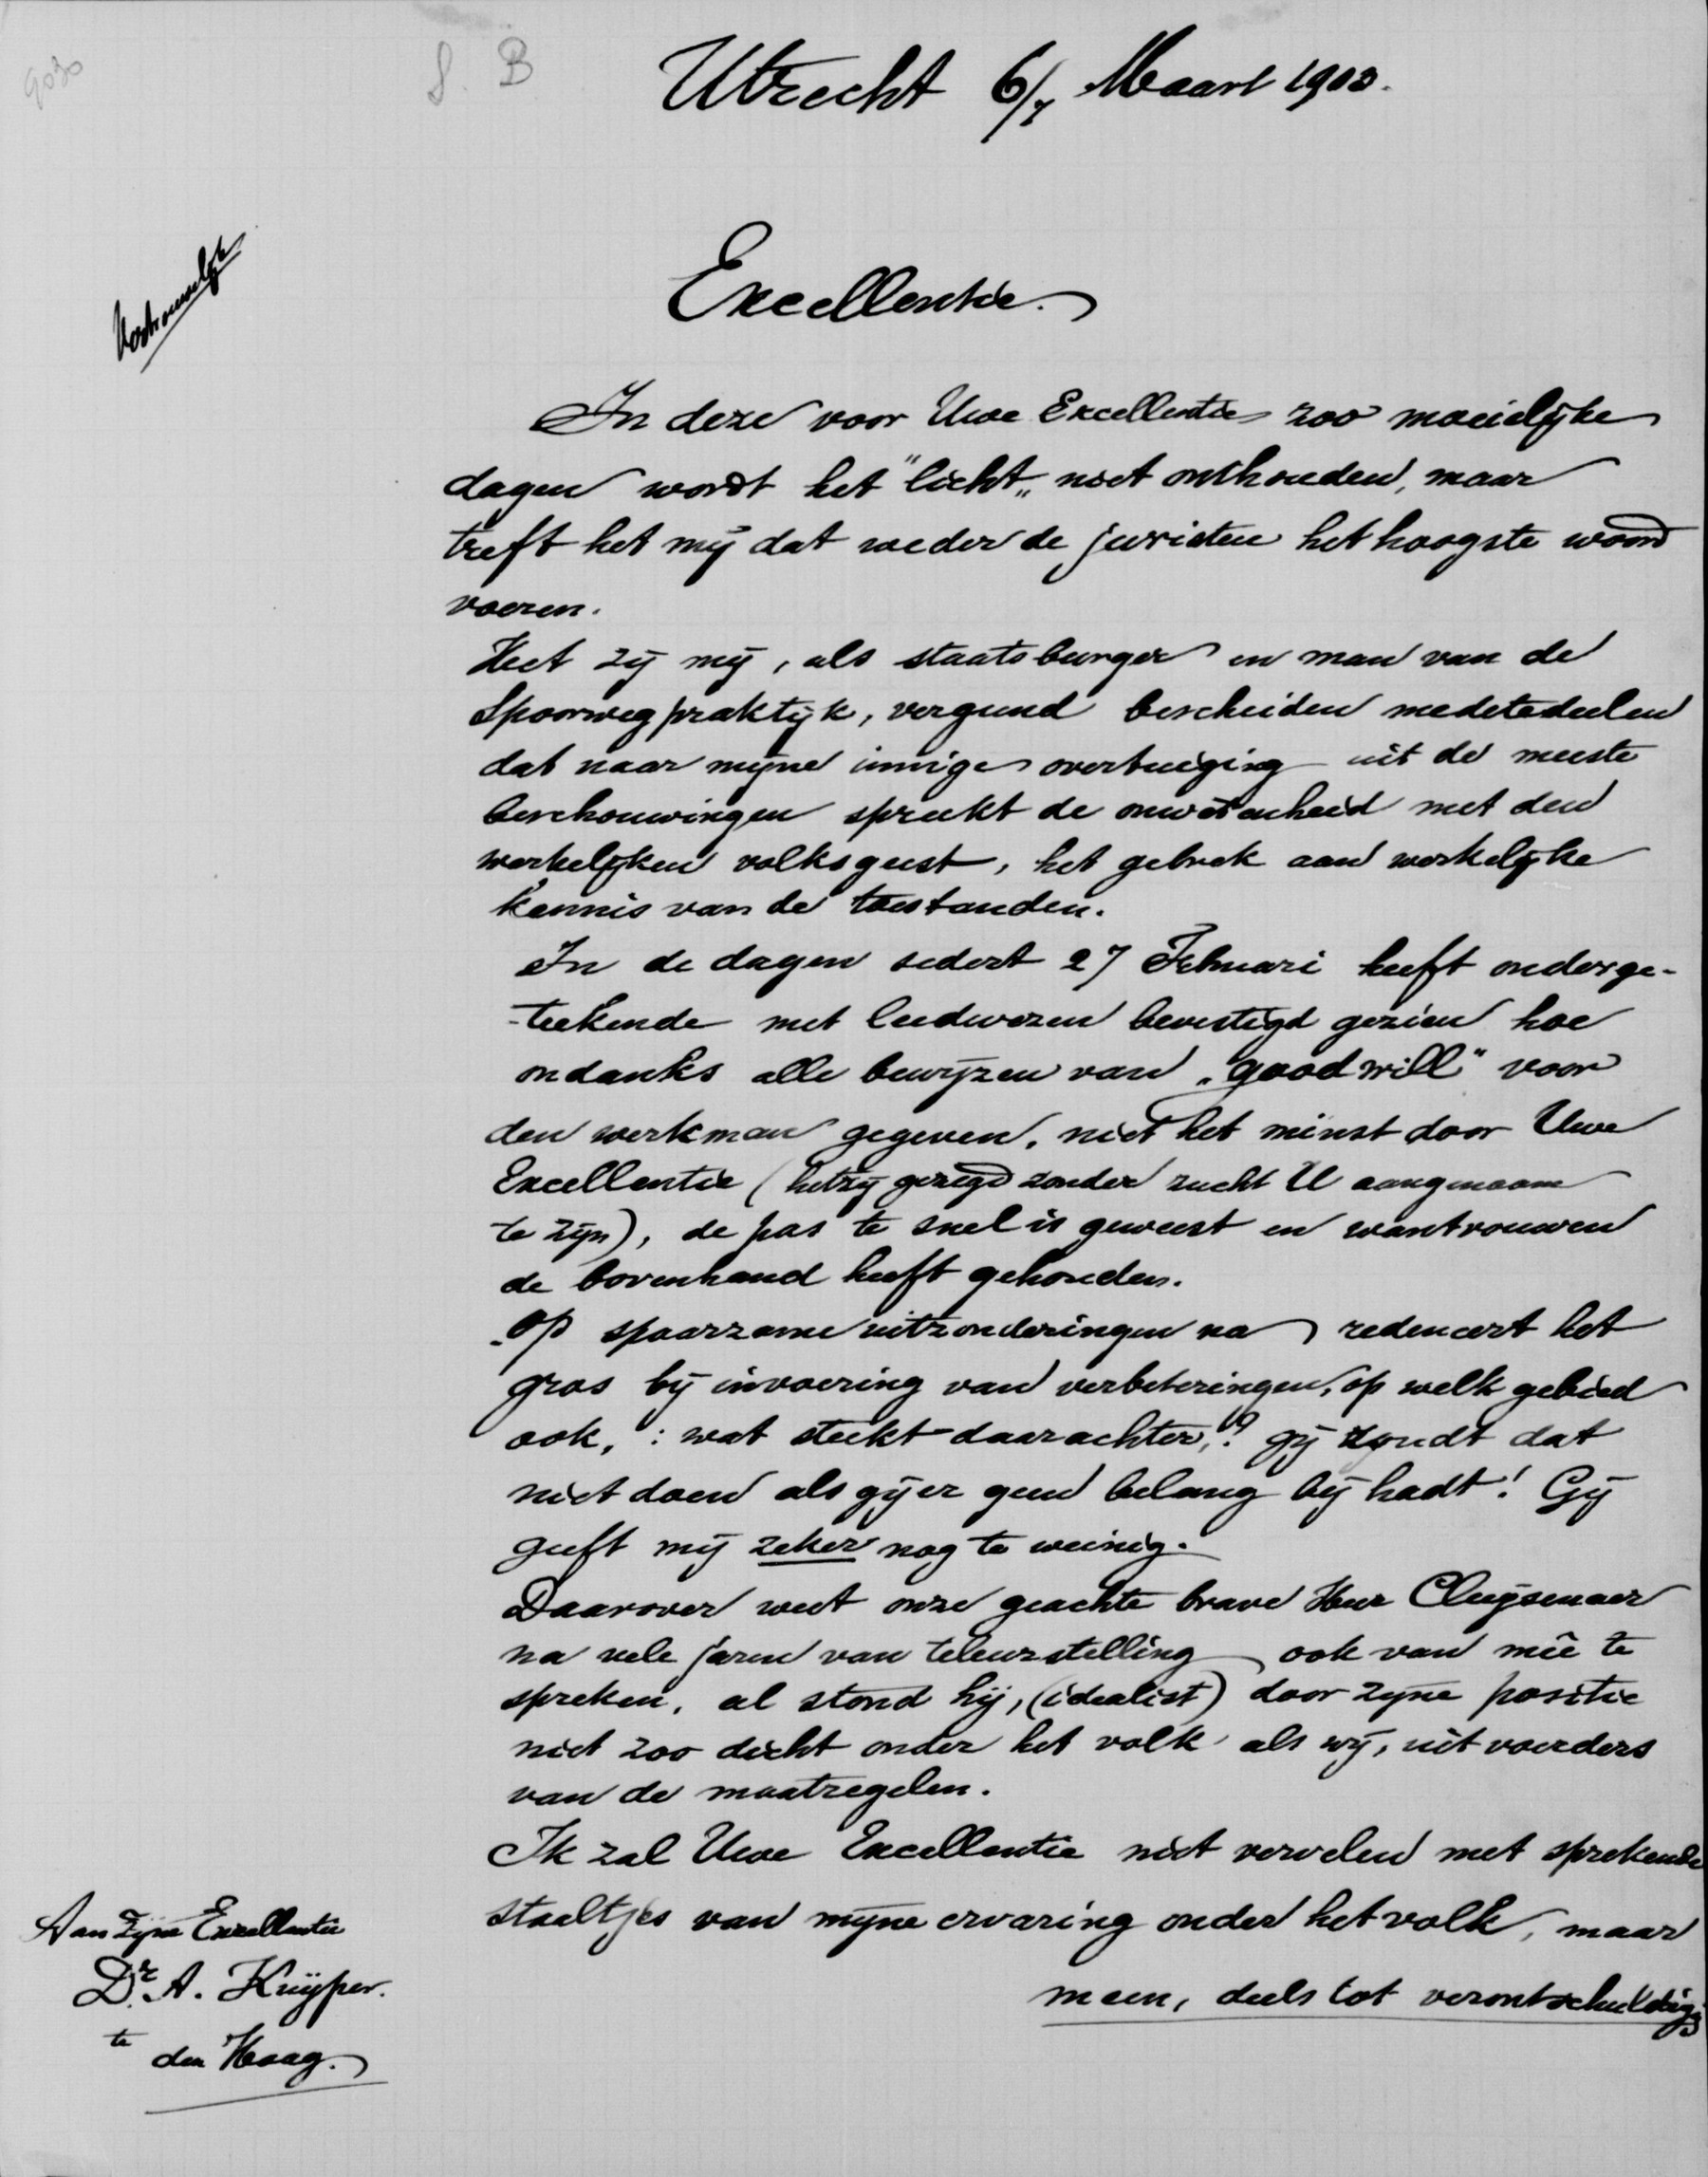 9030
S. B
Utrecht 6/7 Maart 1903.
Vertrouwelijk
Excellentie.
In deze voor Uwe Excellentie zoo moeielijke
dagen wordt het "licht" niet onthouden, maar
treft het mij dat weder de juristen het hoogste woord
voeren.
Het zij mij, als staatsburger en man van de
Spoorwegpraktijk, vergund bescheiden medetedeelen
dat naar mijne innige overtuiging uit de meeste
beschouwingen spreekt de onwetenheid met den
werkelijken volksgeest, het gebrek aan werkelijke
kennis van de toestanden.
In de dagen sedert 27 Februari heeft onderge-
-teekende met leedwezen bevestigd gezien hoe
ondanks alle bewijzen van "goodwill" voor
den werkman gegeven, niet het minst door Uwe
Excellentie (hetzij gezegd zonder zucht U aangenaam
te zijn), de pas te snel is geweest en wantrouwen
de bovenhand heeft gehouden.
Op spaarzame uitzonderingen na redeneert het
gros bij invoering van verbeteringen, op welk gebied
ook, : wat steekt daarachter,? gij zoudt dat
niet doen als gij er geen belang bij hadt! Gij
geeft mij zeker nog te weinig.
Daarover weet onze geachte brave Heer Cluysenaer
na vele jaren van teleurstelling ook van mêe te
spreken, al stond hij, (idealist) door zijne positie
niet zoo dicht onder het volk als wij, uitvoerders
van de maatregelen.
Ik zal Uwe Excellentie niet vervelen met sprekende
staaltjes van mijne ervaring onder het volk, maar
meen, deels tot verontschuldiging
Aan Zijne Excellentie
Dr. A. Kuijper.
te
den Haag.